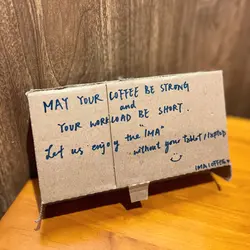 MAY YOUR COFFEE BE STRONG
and
YOUR WORKLOAD BE SHORT.
Let us enjoy the "IMA"
without your tablet/laptop
IMA COFFEE